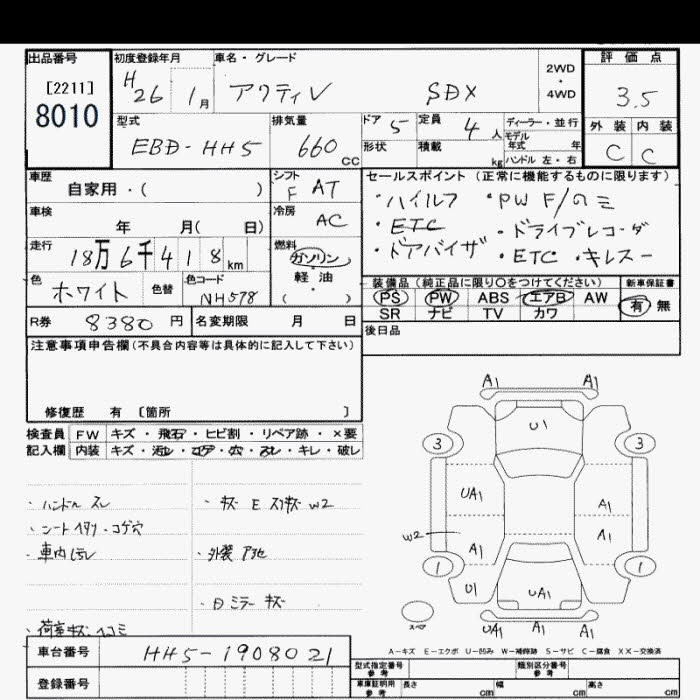 出品番号
[2211]
8010
初度登録年月
H26 1月
車名・グレード
アクティV SDX
2WD
・
4WD
評価点
3.5
外装 内装
C C
型式
EBD-HH5
排気量
660 cc
ドア 5
定員 4人
形状
積載 kg
ディーラー・並行
モデル年式 年
ハンドル 左・右
車歴
自家用・( )
シフト
F AT
セールスポイント (正常に機能するものに限ります)
・ハイルフ ・PW F/のミ
・ETC ・ドライブレコーダ
・ドアバイザ ・ETC ・キレスー
車検
年 月( 日)
冷房
AC
走行
18万6千418km
燃料
ガソリン
軽・油
( )
色
ホワイト
色替
色コード
NH578
装備品 (純正品に限り○をつけてください)
PS PW ABS エアB AW
SR ナビ TV カワ
新車保証書
有 無
R券 8380円
名変期限 月 日
後日品
注意事項申告欄(不具合内容等は具体的に記入して下さい)
修復歴 有 〔箇所 〕
検査員 FW キズ・飛石・ヒビ割・リペア跡・×要
記入欄 内装 キズ・汚レ・コゲ・穴・スレ・キレ・破レ
・ハンドル スレ
・シートヘタリ・コゲ穴
・車内ヨゴレ
・荷室キズ、ヘコミ
・キズ E スリキズ W2
・外装 アセ
・ミラー キズ
A1 A1
U1
3 3
UA1 A1
W2 A1 A1
1 1
U1 UA1
スペア
UA1 A1 A1
A-キズ E-エクボ U-凹み W-補修跡 S-サビ C-腐食 XX-交換済
車台番号 HH5-1908021
登録番号
型式指定番号 参考
類別区分番号 参考
車庫証明用 参考 長さ cm 幅 cm 高さ cm